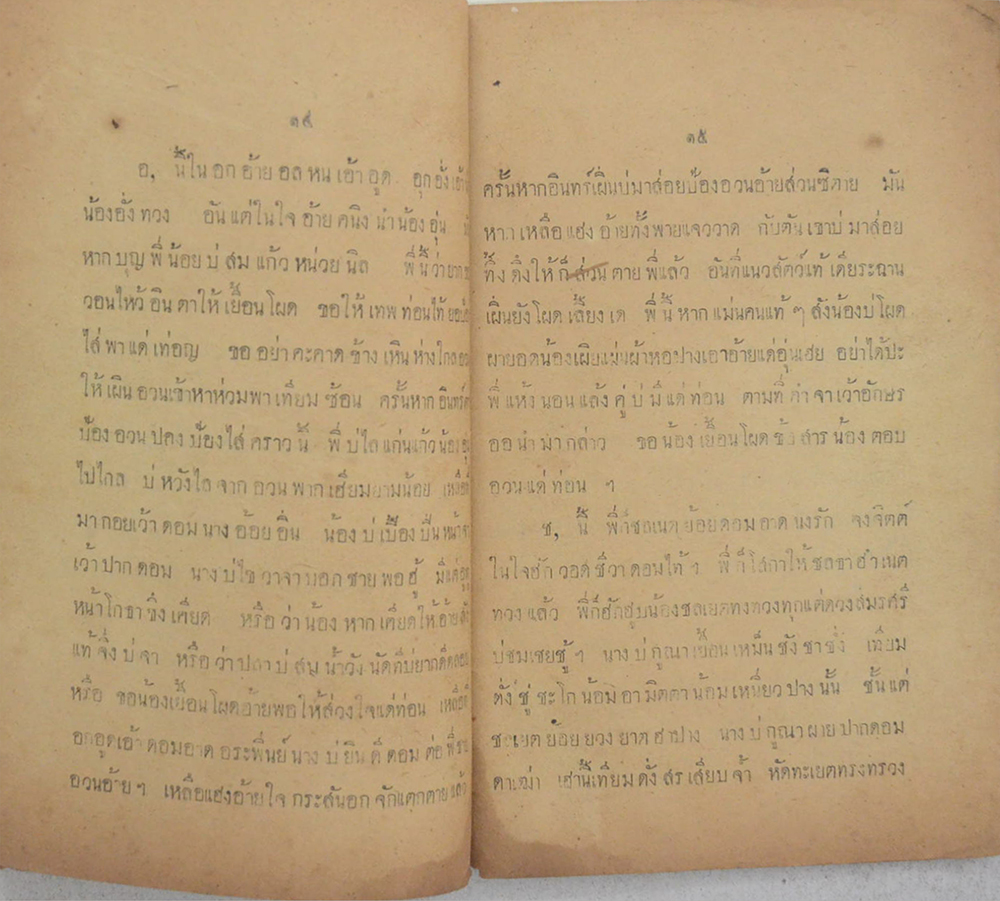 ๑๔
อ, นี้ใน อก อ้าย อล หน เอ้า อูด อุก อั่ง เอ้า
น้องอั่ง ทวง อัน แต่ ในใจ อ้าย คนิง นำ น้อง อุ่น
หาก บุญ พี่ น้อย บ่ สม แก้ว หน่วย นิล พี่ นี้ ว่า
วอนไหว้ อินตาให้ เยื้อนโผด ขอให้ เทพ ท่อนไท้
ไส่ พา แด่ เทอญ ขอ อย่า คะคาด ข้าง เหินห่างไกล
ให้ เผิน อวนเข้าหาห่วมพา เทียม ซ้อน ครั้นหาก อินทร์
ป้อง อวน ปอง ป้องไส่ คราว นี้ พี่ บ่ไล แก่นแก้ว น้อง
ไปไกล บ่ หวังไล จาก อวน พาก เฮียมยามน้อย
มา กอยเว้า ดอม นาง อ้อย อิ่น น้อง บ่ เบือง บื่น หน้า
เว้า ปาก ดอม นาง บ่ไข วาจา บอก ชาย พอ ฮู้ มีแต่
หน้า โกธา ขึ้ง เคียด หรือ ว่า น้อง หาก เคียดให้ อ้าย
แท้ จึ่ง บ่ จา หรือ ว่า ปลา บ่ สน น้ำวัง นัดที่บ่ยาก
หรือ ขอน้องเยื้อนโผดอ้ายพอ ให้ ส่วงใจแด่ท่อน
อกอูดเอ้า ดอมอาด อระพิ่นย์ นาง บ่ ยินดี ดอม ต่อ พี่
อวนอ้าย ฯ เหลือแฮงอ้ายใจ กระสันอก จักแตกตาย แล้ว
๑๕
ครั้นหากอินทร์เผิ่นบ่มาส่อยป้องอวนอ้ายส่วนซิตาย มัน
หาก เหลือ แฮง อ้ายทั้งพายแจววาด กับตันเขาบ่ มาส่อย
ทึ้ง ดึงให้ ก็ ส่วน ตาย พี่แล้ว อันที่แนวสัตว์แท้ เดียระฉาน
เผิ่นยังโผด เลี้ยง เด พี่ นี้ หาก แม่นคนแท้ ๆ สังน้องบ่โผด
ผายอดน้องเผียแผ่นผ้าหอปางเอาอ้ายแด่อุ่นเฮย อย่าได้ปะ
พี่ แห้ง นอน แล้ง คู่ บ่ มี แด่ ท่อน ตามที่ คำ จา เว้าอักษร
ออ นำ มา กล่าว ขอ น้อง เยื้อนโผด ซ้ำ สาร น้อง ตอบ
อวน แด่ ท่อน ฯ
ช, นี้ พี่ก็ชลเนตย้อยดอม อาด นงรัก จงจิตต์
ในใจฮัก วอด ชีวา ดอมไท้ ฯ พี่ ก็ โสกาให้ ชลธา ฮำเนต
ทวง แล้ว พี่ก็ฮักฮูบน้องชลเยตทงทวงทุกแต่ดวงสมรศรี
บ่ชมเชยชู้ ฯ นาง บ่ กูณา เยื้อน เหม็น ชัง ชา ซึ้ง เทียม
ดั่ง ชู่ ชะ โก น้อม อา มิตตา น้อม เหนี่ยว ปาง นั้น ชั้น แต่
ชลเยต ย้อย ยวง ยาด ฮำปาง นาง บ่ กูณา ผาย ปากดอม
ดาเฒ่า เฮ่านี้เทียม ดั่ง สร เสียบ จ้ำ หัดทะเยตทรงทรวง